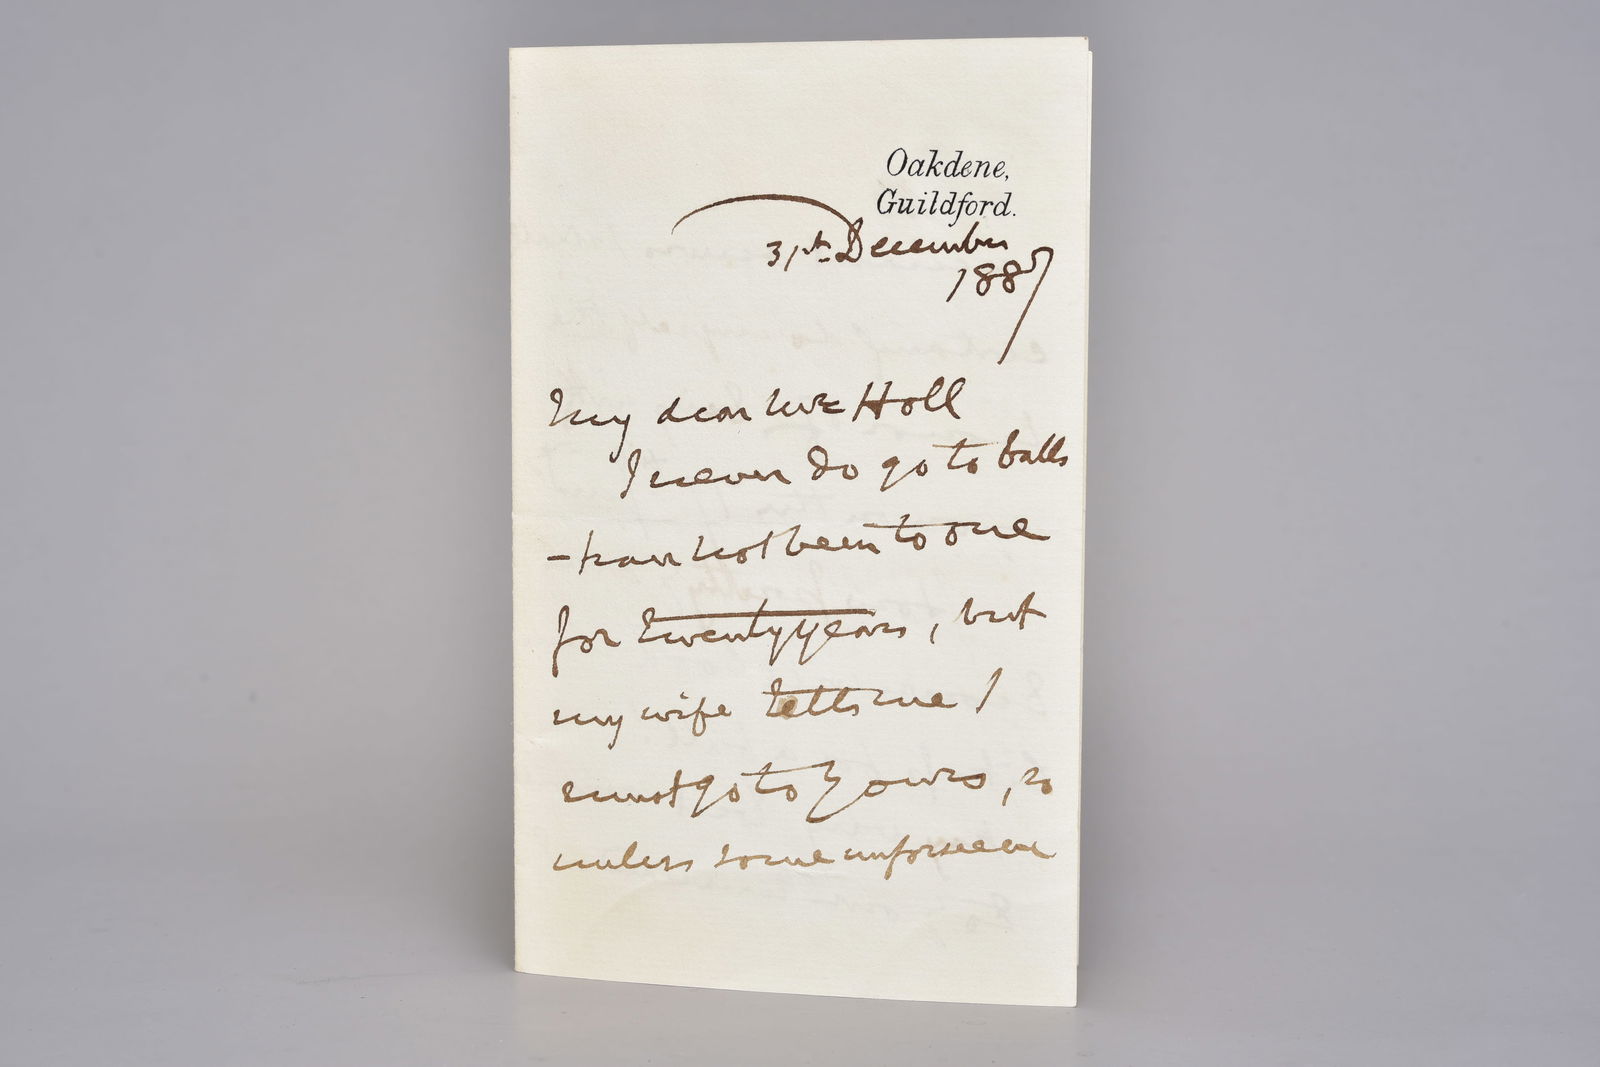 Oakdene,
Guildford.
31st December
1887
My dear Mrs Holl
I never do go to balls
- have not been to one
for twenty years, but
my wife tells me I
must go to yours, so
unless some unforseen